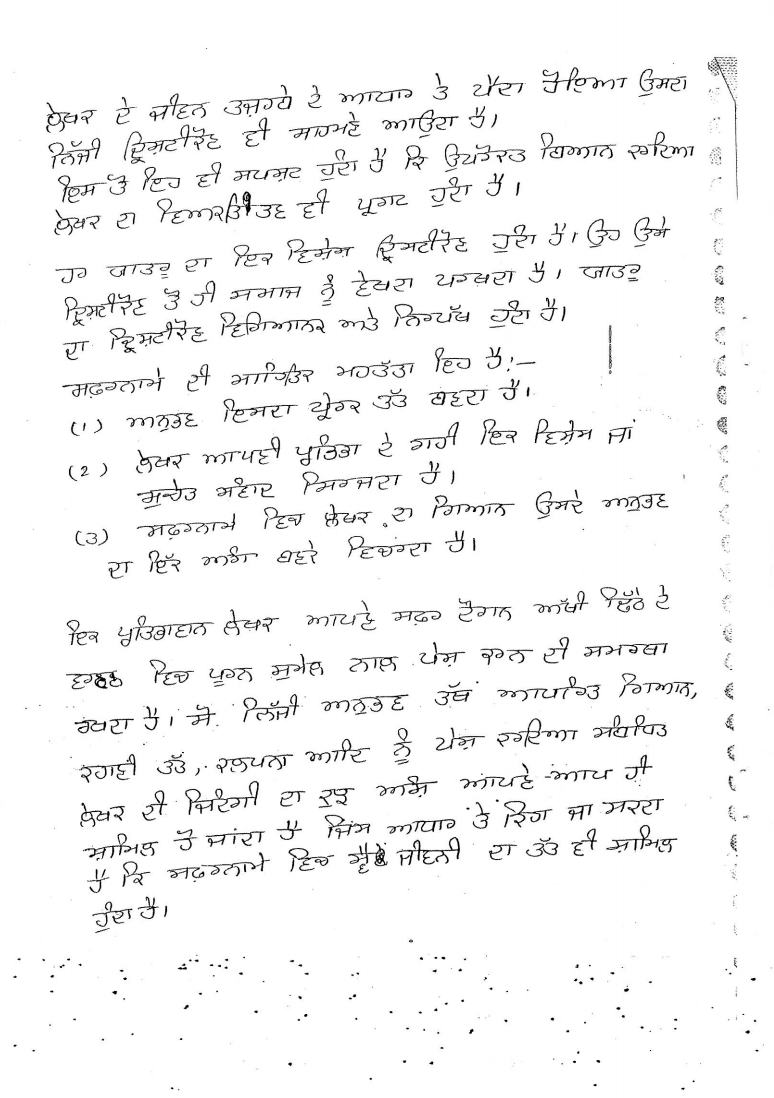 ਲੇਖਕ ਦੇ ਜੀਵਨ ਤਜ਼ਰਬੇ ਦੇ ਆਧਾਰ ਤੇ ਪੈਦਾ ਹੋਇਆ ਉਸਦਾ
ਨਿੱਜੀ ਦ੍ਰਿਸ਼ਟੀਕੋਣ ਵੀ ਸਾਹਮਣੇ ਆਉਂਦਾ ਹੈ।
ਇਸ ਤੋਂ ਇਹ ਵੀ ਸਪਸ਼ਟ ਹੁੰਦਾ ਹੈ ਕਿ ਉਪਰੋਕਤ ਬਿਆਨ ਕਰਦਿਆਂ
ਲੇਖਕ ਦਾ ਵਿਅਕਤਿੱਤਵ ਵੀ ਪ੍ਰਗਟ ਹੁੰਦਾ ਹੈ।
ਹਰ ਯਾਤਰੂ ਦਾ ਇਕ ਵਿਸ਼ੇਸ਼ ਦ੍ਰਿਸ਼ਟੀਕੋਣ ਹੁੰਦਾ ਹੈ। ਉਹ ਉਸੇ
ਦ੍ਰਿਸ਼ਟੀਕੋਣ ਤੋਂ ਹੀ ਸਮਾਜ ਨੂੰ ਦੇਖਦਾ ਪਰਖਦਾ ਹੈ। ਯਾਤਰੂ
ਦਾ ਦ੍ਰਿਸ਼ਟੀਕੋਣ ਵਿਗਿਆਨਕ ਅਤੇ ਨਿਰਪੱਖ ਹੁੰਦਾ ਹੈ।
ਸਫ਼ਰਨਾਮੇ ਦੀ ਸਾਹਿਤਕ ਮਹੱਤਤਾ ਇਹ ਹੈ:—
(1) ਅਨੁਭਵ ਇਸਦਾ ਪ੍ਰੇਰਕ ਤੱਤ ਬਣਦਾ ਹੈ।
(2) ਲੇਖਕ ਆਪਣੀ ਪ੍ਰਤਿਭਾ ਦੇ ਰਾਹੀਂ ਇਕ ਵਿਸ਼ੇਸ਼ ਜਾਂ
ਸੁਚੇਤ ਸੰਵਾਦ ਸਿਰਜਦਾ ਹੈ।
(3) ਸਫ਼ਰਨਾਮੇ ਵਿਚ ਲੇਖਕ ਦਾ ਗਿਆਨ ਉਸਦੇ ਅਨੁਭਵ
ਦਾ ਇੱਕ ਅੰਗ ਬਣਕੇ ਵਿਚਰਦਾ ਹੈ।
ਇਕ ਪ੍ਰਤਿਭਾਵਾਨ ਲੇਖਕ ਆਪਣੇ ਸਫ਼ਰ ਦੌਰਾਨ ਅੱਖੀਂ ਡਿੱਠੇ ਦੇ
ਵਰਣਨ ਵਿਚ ਪੂਰਨ ਸੁਮੇਲ ਨਾਲ ਪੇਸ਼ ਕਰਨ ਦੀ ਸਮਰਥਾ
ਰਖਦਾ ਹੈ। ਸੋ ਨਿੱਜੀ ਅਨੁਭਵ ਤੱਥ ਆਧਾਰਿਤ ਗਿਆਨ,
ਕਹਾਣੀ ਤੱਤ, ਕਲਪਨਾ ਆਦਿ ਨੂੰ ਪੇਸ਼ ਕਰਦਿਆਂ ਸੰਬੰਧਿਤ
ਲੇਖਕ ਦੀ ਜ਼ਿੰਦਗੀ ਦਾ ਕੁਝ ਅੰਸ਼ ਆਪਣੇ-ਆਪ ਹੀ
ਸ਼ਾਮਿਲ ਹੋ ਜਾਂਦਾ ਹੈ ਜਿਸ ਆਧਾਰ ਤੇ ਕਿਹਾ ਜਾ ਸਕਦਾ
ਹੈ ਕਿ ਸਫ਼ਰਨਾਮੇ ਵਿਚ ਸ੍ਵੈ ਜੀਵਨੀ ਦਾ ਤੱਤ ਵੀ ਸ਼ਾਮਿਲ
ਹੁੰਦਾ ਹੈ।